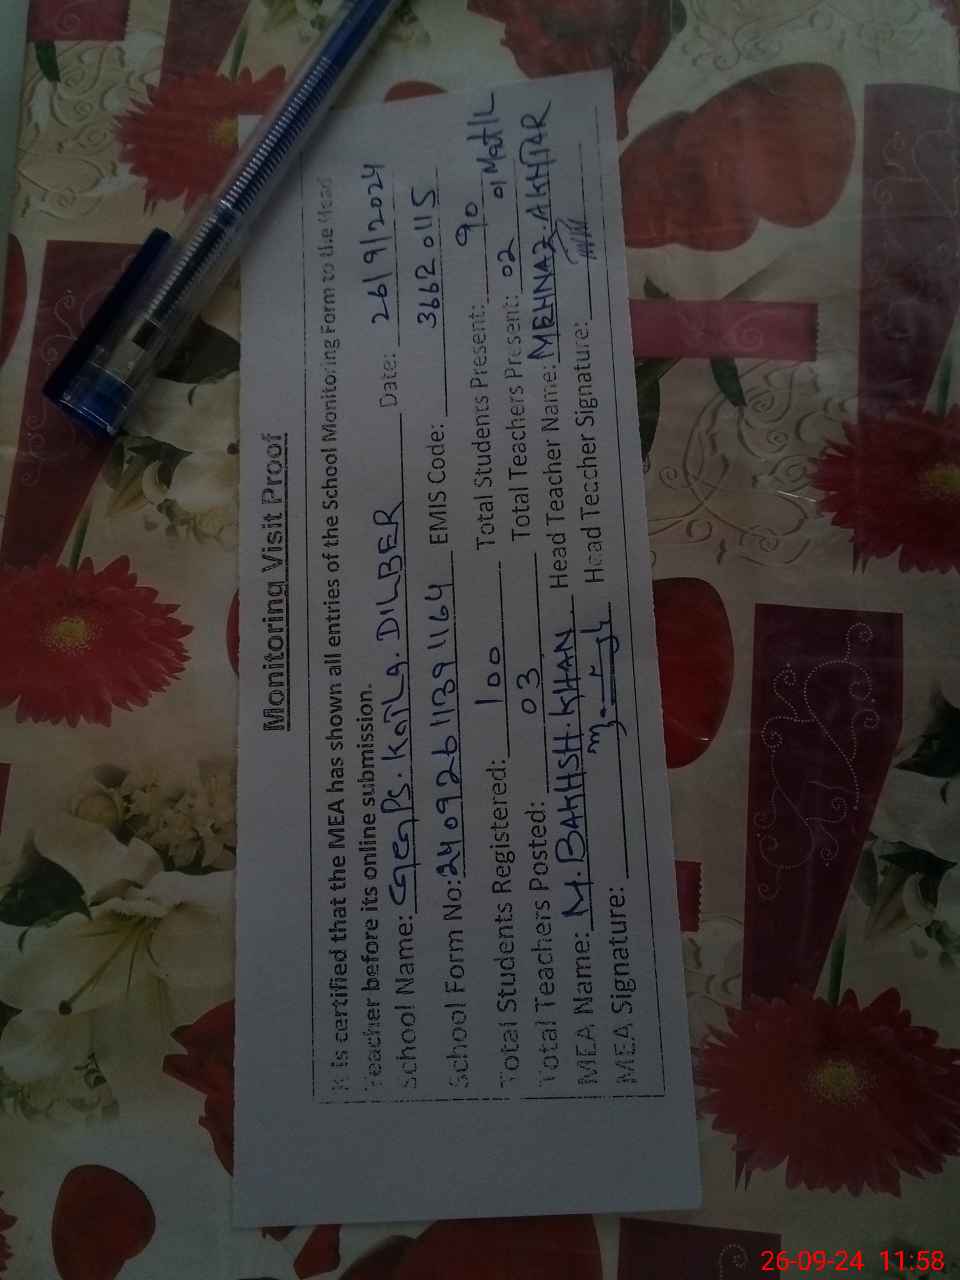 Monitoring Visit Proof
It is certified that the MEA has shown all entries of the School Monitoring Form to the Head
Teacher before its online submission.
School Name: GGPS. KOTLA. DILBER Date: 26/9/2024
School Form No: 24092611391164 EMIS Code: 36620115
Total Students Registered: 100 Total Students Present: 90
Total Teachers Posted: 03 Total Teachers Present: 02 01 Mat/L
MEA Name: M. BAKHSH. KHAN Head Teacher Name: MEHNAZ. AKHTAR
MEA Signature: Head Teacher Signature:
26-09-24 11:58